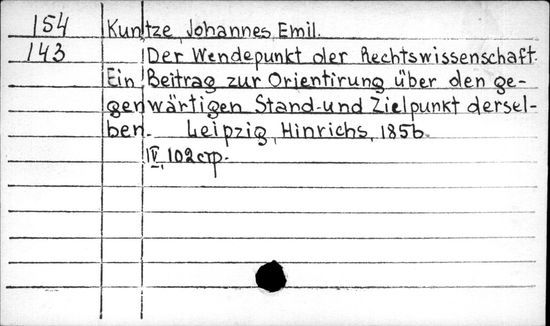 154 Kuntze, Johannes Emil.
143 Der Wendepunkt der Rechtswissenschaft.
Ein Beitrag zur Orientirung über den ge-
genwärtigen Stand-und Zielpunkt dersel-
ben. Leipzig, Hinrichs, 1856.
IV, 102 стр.